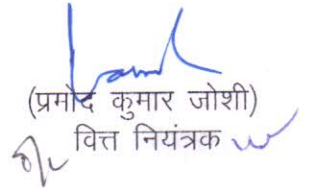 (प्रमोद कुमार जोशी)
वित्त नियंत्रक